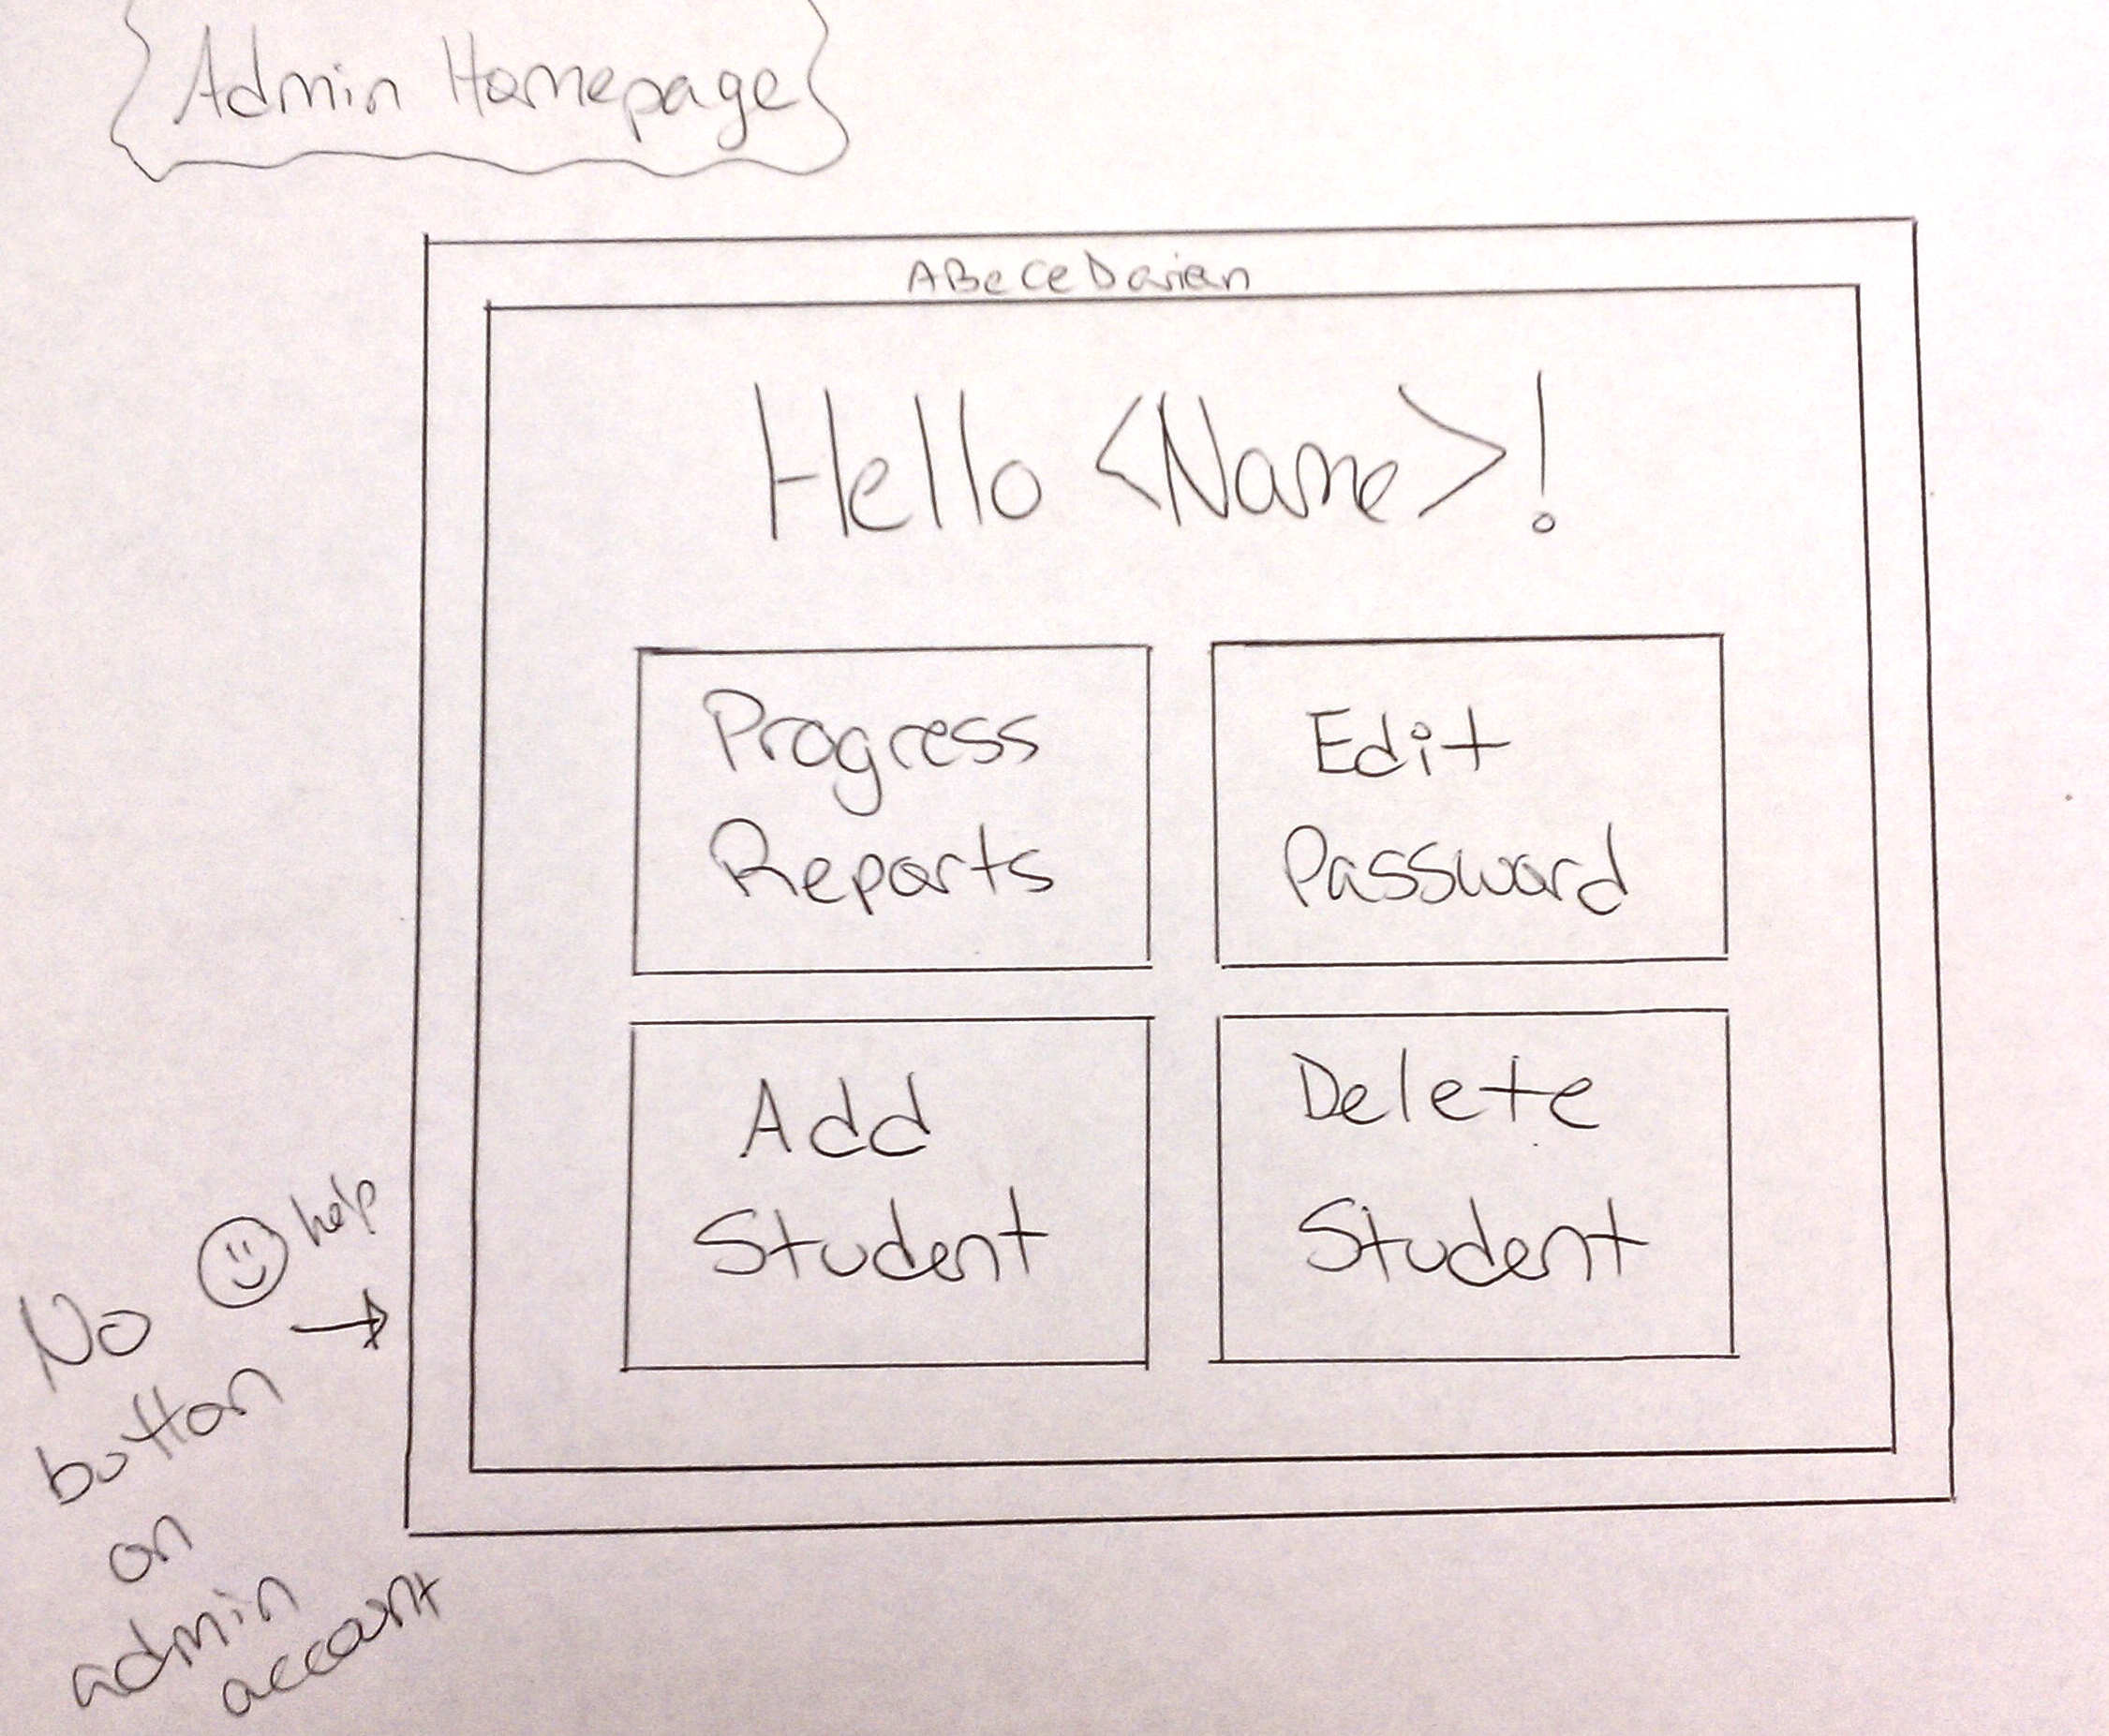 Admin Homepage
ABeCeDarian
Hello <Name>!
Progress
Reports
Edit
Password
Add
Student
Delete
Student
No help
button
on
admin
account